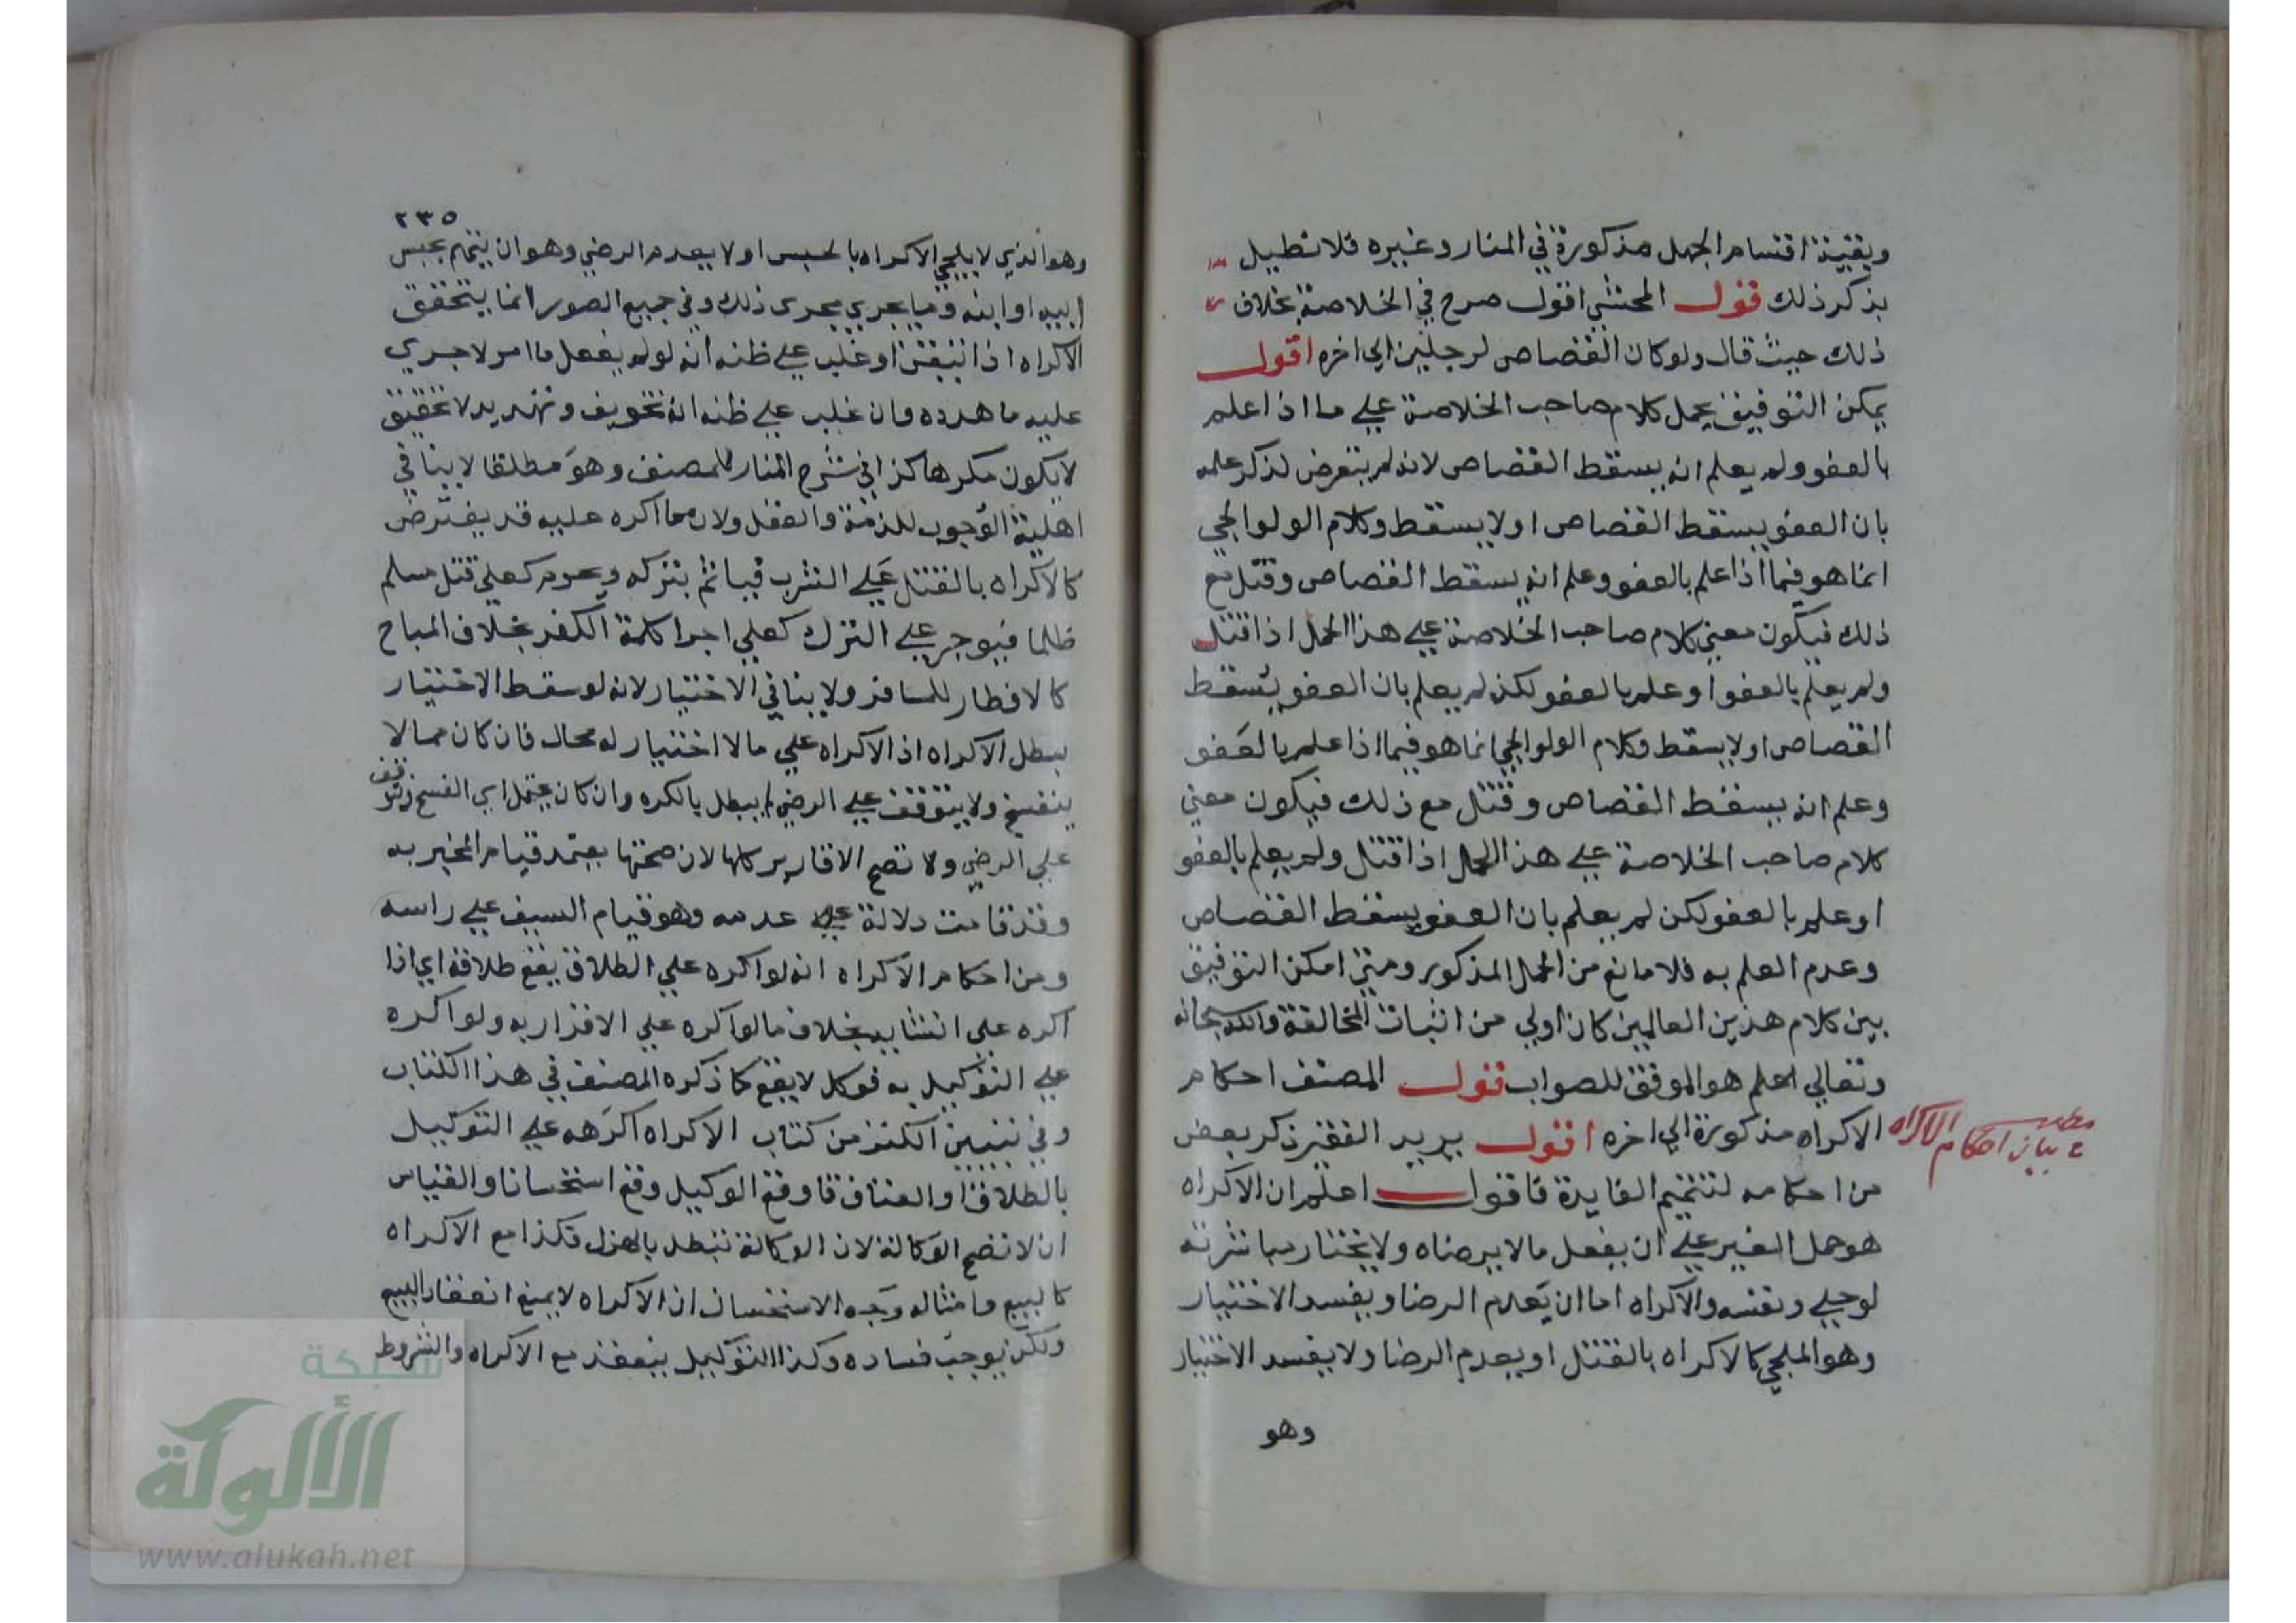 وبقية اقسام الجهل مذكورة في المنار وغيره فلا نطيل
بذكر ذلك قول المحشي اقول صرح في الخلاصة بخلاف
ذلك حيث قال ولو كان القصاص لرجلين الى اخره اقول
يمكن التوفيق بحمل كلام صاحب الخلاصة على ما اذا علم
بالعفو ولم يعلم انه يسقط القصاص لانه لم يتعرض لذكر علمه
بان العفو يسقط القصاص او لا يسقط وكلام الولوالجي
انما هو فيما اذا علم بالعفو وعلم انه يسقط القصاص وقتل مع
ذلك فيكون معنى كلام صاحب الخلاصة على هذا الحمل اذا قتل
ولم يعلم بالعفو او علم بالعفو لكن لم يعلم بان العفو يسقط
القصاص او لا يسقط وكلام الولوالجي انما هو فيما اذا علم بالعفو
وعلم انه يسقط القصاص وقتل مع ذلك فيكون معنى
كلام صاحب الخلاصة على هذا الحمل اذا قتل ولم يعلم بالعفو
او علم بالعفو لكن لم يعلم بان العفو يسقط القصاص
وعدم العلم به فلا مانع من الحمل المذكور ومتى امكن التوفيق
بين كلام هذين العالمين كان اولى من اثبات المخالفة والله سبحانه
وتعالى اعلم هو الموفق للصواب قول المصنف احكام
الاكراه مذكورة الى اخره اقول يريد الفقير ذكر بعض
مطلب في بيان احكام الاكراه
من احكامه لتتميم الفايدة فاقول اعلم ان الاكراه
هو حمل الغير على ان يفعل ما لا يرضاه ولا يختار مباشرته
لو خلى ونفسه والاكراه اما ان يعدم الرضا ويفسد الاختيار
وهو الملجي كالاكراه بالقتل او يعدم الرضا ولا يفسد الاختيار
وهو
٢٣٥
وهو الذي لا يلجي الاكراه بالحبس او لا يعدم الرضى وهو ان يهتم بحبس
ابيه او ابنه وما يجري مجرى ذلك وفي جميع الصور انما يتحقق
الاكراه اذا تيقن او غلب على ظنه انه لو لم يفعل ما امر لاجري
عليه ما هدده فان غلب على ظنه انه تخويف وتهديد لا تحقيق
لا يكون مكرها كذا في شرح المنار للمصنف وهو مطلقا لا ينافي
اهلية الوجوب للذمة والعقل ولان ما اكره عليه قد يفترض
كالاكراه بالقتل على الشرب فياثم بتركه ويحرم كعلى قتل مسلم
ظلما فيوجر على الترك كعلى اجرا كلمة الكفر بخلاف المباح
كالافطار للمسافر ولا ينافي الاختيار لانه لو سقط الاختيار
يبطل الاكراه اذ الاكراه على ما لا اختيار له محال فان كان مما لا
ينفسخ ولا يتوقف على الرضى لم يبطل بالكره وان كان يحتمل اي الفسخ وتوقف
على الرضى ولا تصح الاقارير كلها لان صحتها يعتمد قيام المخبر به
وقد قامت دلالة على عدمه وهو قيام السيف على راسه
ومن احكام الاكراه انه لو اكره على الطلاق يقع طلاقه اي اذا
اكره على انشايه بخلاف ما لو اكره على الاقرار به ولو اكره
على التوكيل به فوكل لا يقع كما ذكره المصنف في هذا الكتاب
وفي تبيين الكنز من كتاب الاكراه اكرهه على التوكيل
بالطلاق او العتاق فاوقع الوكيل وقع استحسانا والقياس
ان لا تصح الوكالة لان الوكالة تبطل بالهزل فكذا مع الاكراه
كالبيع وامثاله وجه الاستحسان ان الاكراه لا يمنع انعقاد البيع
ولكن يوجب فساده وكذا التوكيل ينعقد مع الاكراه والشروط
شبكة
الألوكة
www.alukah.net